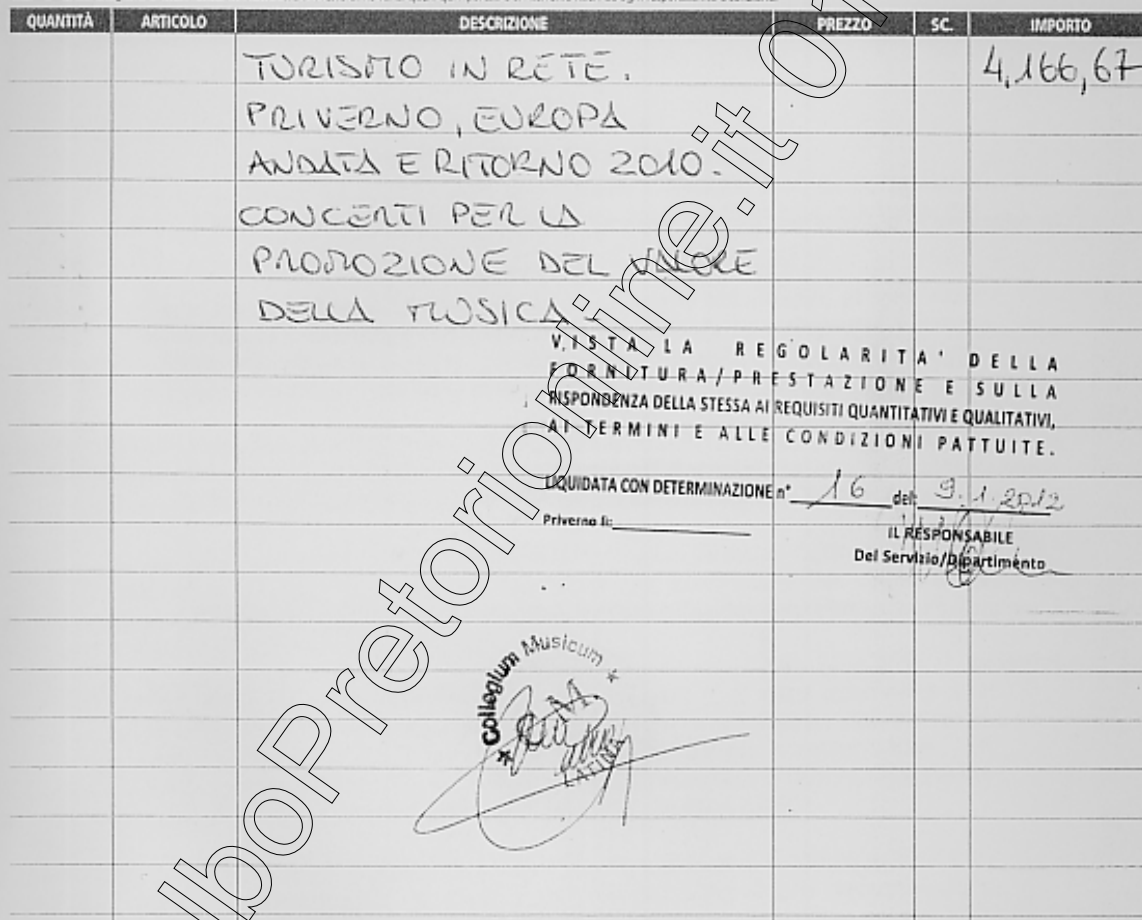 QUANTITÀ ARTICOLO DESCRIZIONE PREZZO SC. IMPORTO
TURISMO IN RETE. 4,166,67
PRIVERNO, EUROPA
ANDATA E RITORNO 2010.
CONCERTI PER LA
PROMOZIONE DEL VALORE
DELLA MUSICA -
VISTA LA REGOLARITA' DELLA
FORNITURA/PRESTAZIONE E SULLA
RISPONDENZA DELLA STESSA AI REQUISITI QUANTITATIVI E QUALITATIVI,
AI TERMINI E ALLE CONDIZIONI PATTUITE.
LIQUIDATA CON DETERMINAZIONE n° 16 del 9.1.2012
Priverno lì:
IL RESPONSABILE
Del Servizio/Dipartimento
Collegium Musicum
LATINA
lboPretorionline.it 01